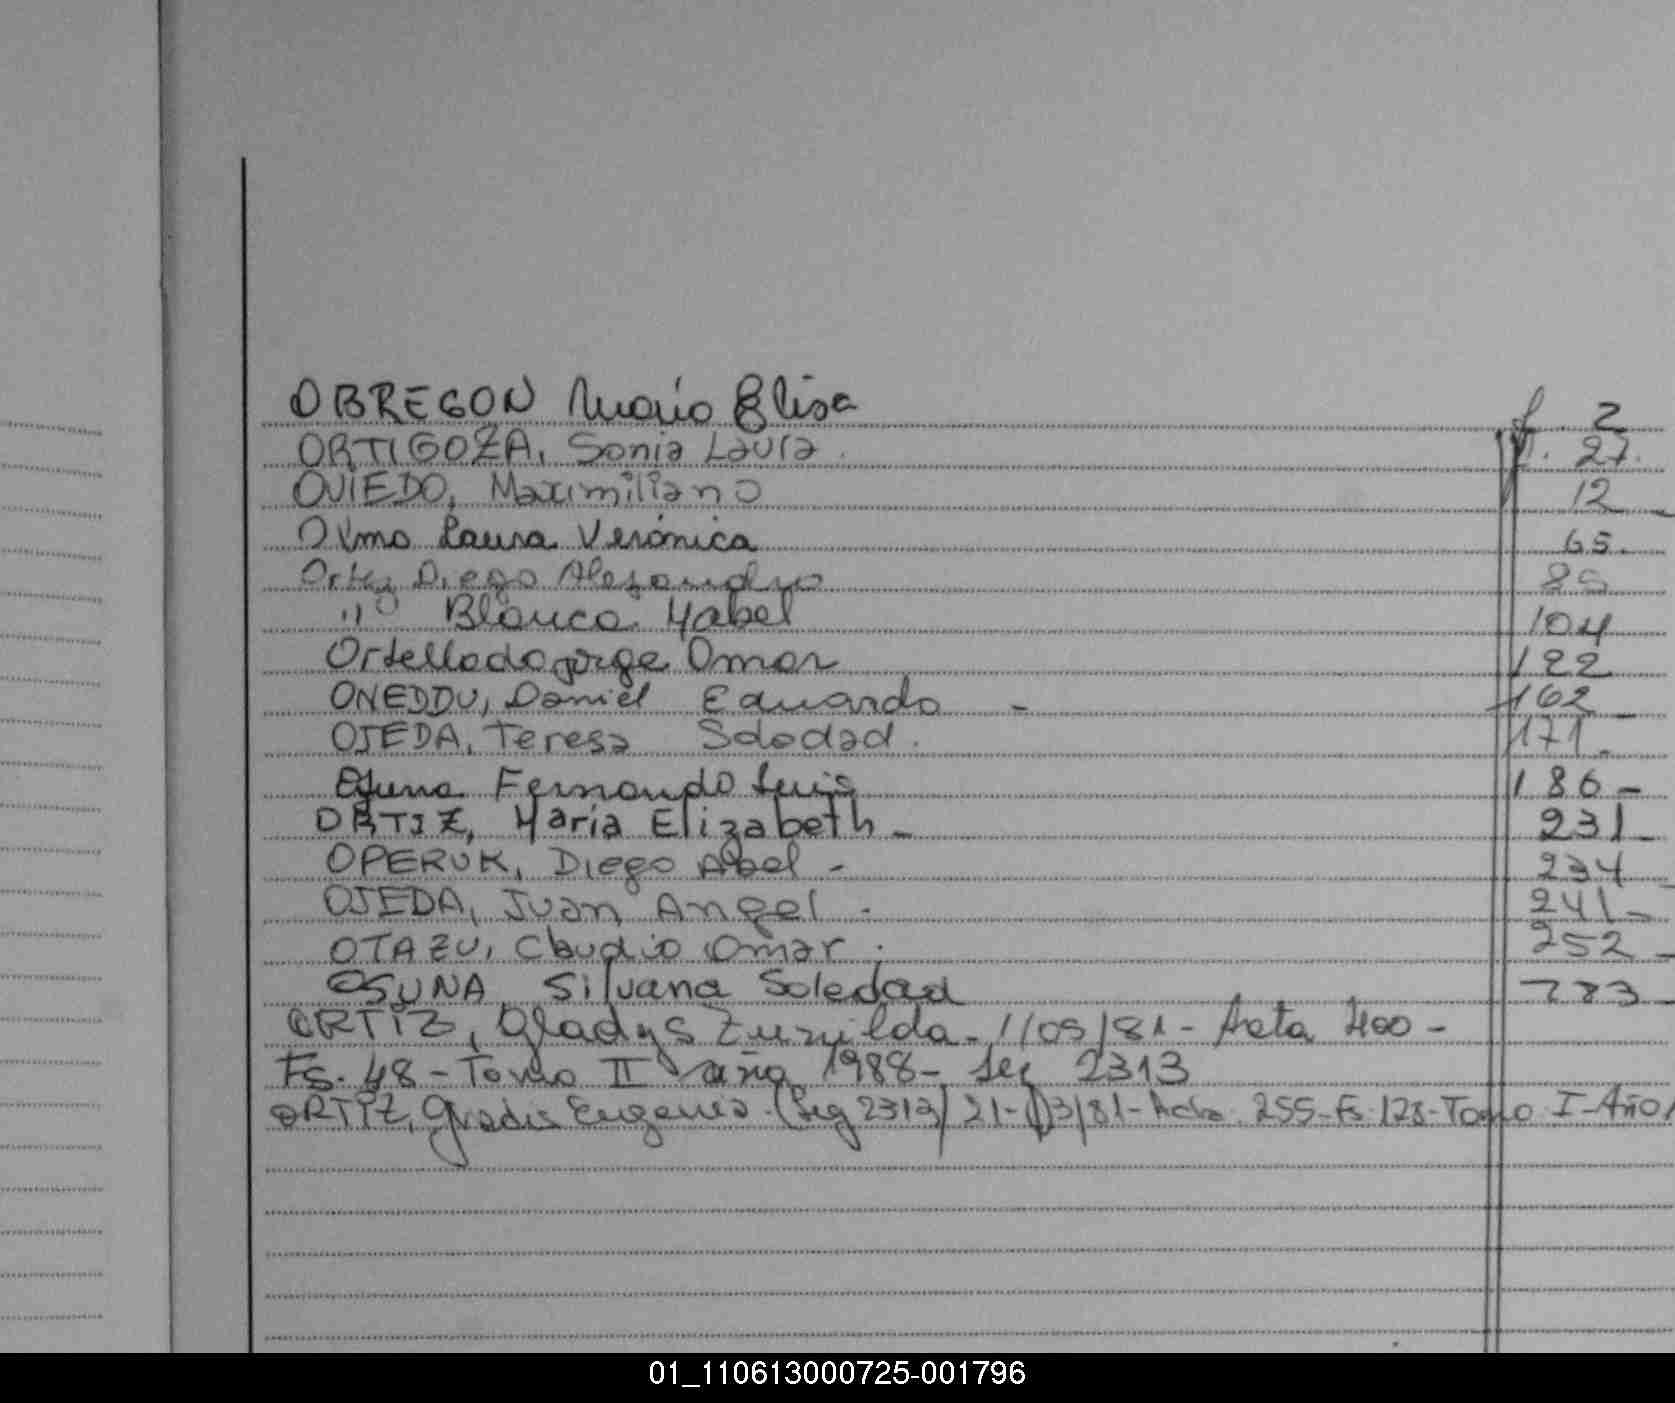 OBREGON Mario Elisa f. 2
ORTIGOZA, Sonia Laura. f. 27.
OVIEDO, Maximiliano 12 -
Olmo Laura Verónica 65.
Ortiz Diego Alejandro 85
" Blanca Ysabel 104
Ortellado Jorge Omar 122
ONEDDU, Daniel Eduardo - 162 -
OJEDA, Teresa Soledad. 171 -
Fernando Luis 186 -
ORTIZ, María Elizabeth - 231 -
OPERUK, Diego Abel - 234 -
OJEDA, Juan Angel - 241 -
OTAZU, Claudio Omar. 252 -
OSUNA, Silvana Soledad 283 -
ORTIZ, Gladys Zunilda - 1/05/81 - Acta 400 -
Fs. 48 - Tomo II año 1988 - Leg 2313
ORTIZ, Gladis Eugenia. (Leg 2313) 21-03/81 - Acta. 255 - Fs. 128 - Tomo I - Año
01_110613000725-001796